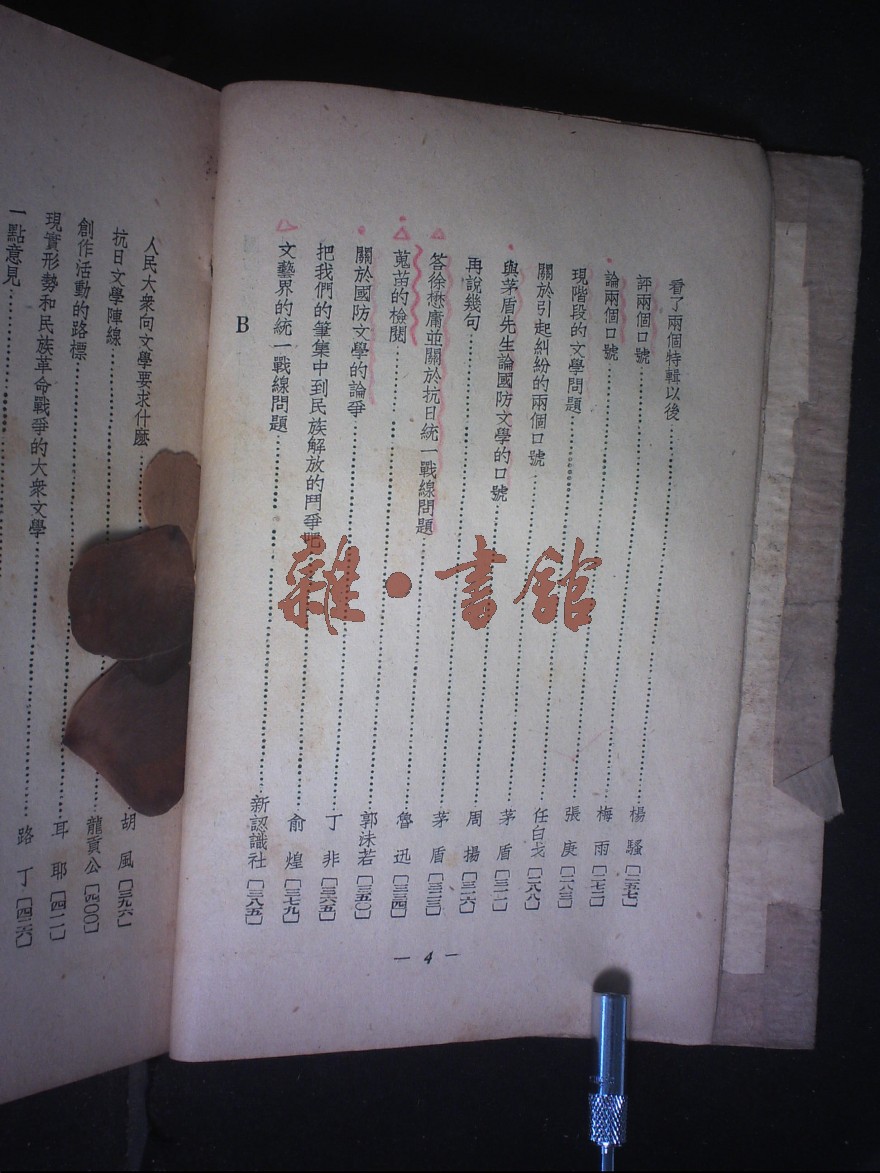 看了兩個特輯以後……楊騷〔二五七〕
評兩個口號……梅雨〔二七二〕
論兩個口號……張庚〔二八三〕
現階段的文學問題……任白戈〔二八八〕
關於引起糾紛的兩個口號……茅盾〔三一一〕
與茅盾先生論國防文學的口號……周揚〔三一六〕
再說幾句……茅盾〔三二三〕
答徐懋庸並關於抗日統一戰線問題……魯迅〔三三四〕
蒐苗的檢閱……郭沫若〔三五〇〕
關於國防文學的論爭……丁非〔三六五〕
把我們的筆集中到民族解放的鬥爭吧……俞煌〔三七九〕
文藝界的統一戰線問題……新認識社〔三八五〕
B
— 4 —
人民大衆向文學要求什麼……胡風〔三九六〕
抗日文學陣線……龍貢公〔四〇〇〕
創作活動的路標……耳耶〔四一一〕
現實形勢和民族革命戰爭的大衆文學……路丁〔四二六〕
一點意見……
雜·書館